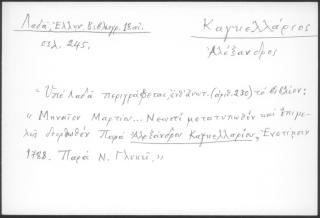 Λαδᾶ, Ἑλλην. βιβλιογρ. 18 αἰ.
σελ. 245.
Καγκελλάριος
Ἀλέξανδρος
Ὑπὸ Λαδᾶ περιγράφεται, (ἀριθ. 230) τὸ βιβλίον:
"Μηναῖον Μαρτίου... Νεωστὶ μετατυπωθὲν καὶ ἐπιμε-
λῶς διορθωθὲν Παρὰ Ἀλεξάνδρου Καγκελλαρίου, Ἐνετίῃσιν
1788. Παρὰ Ν. Γλυκεῖ,"